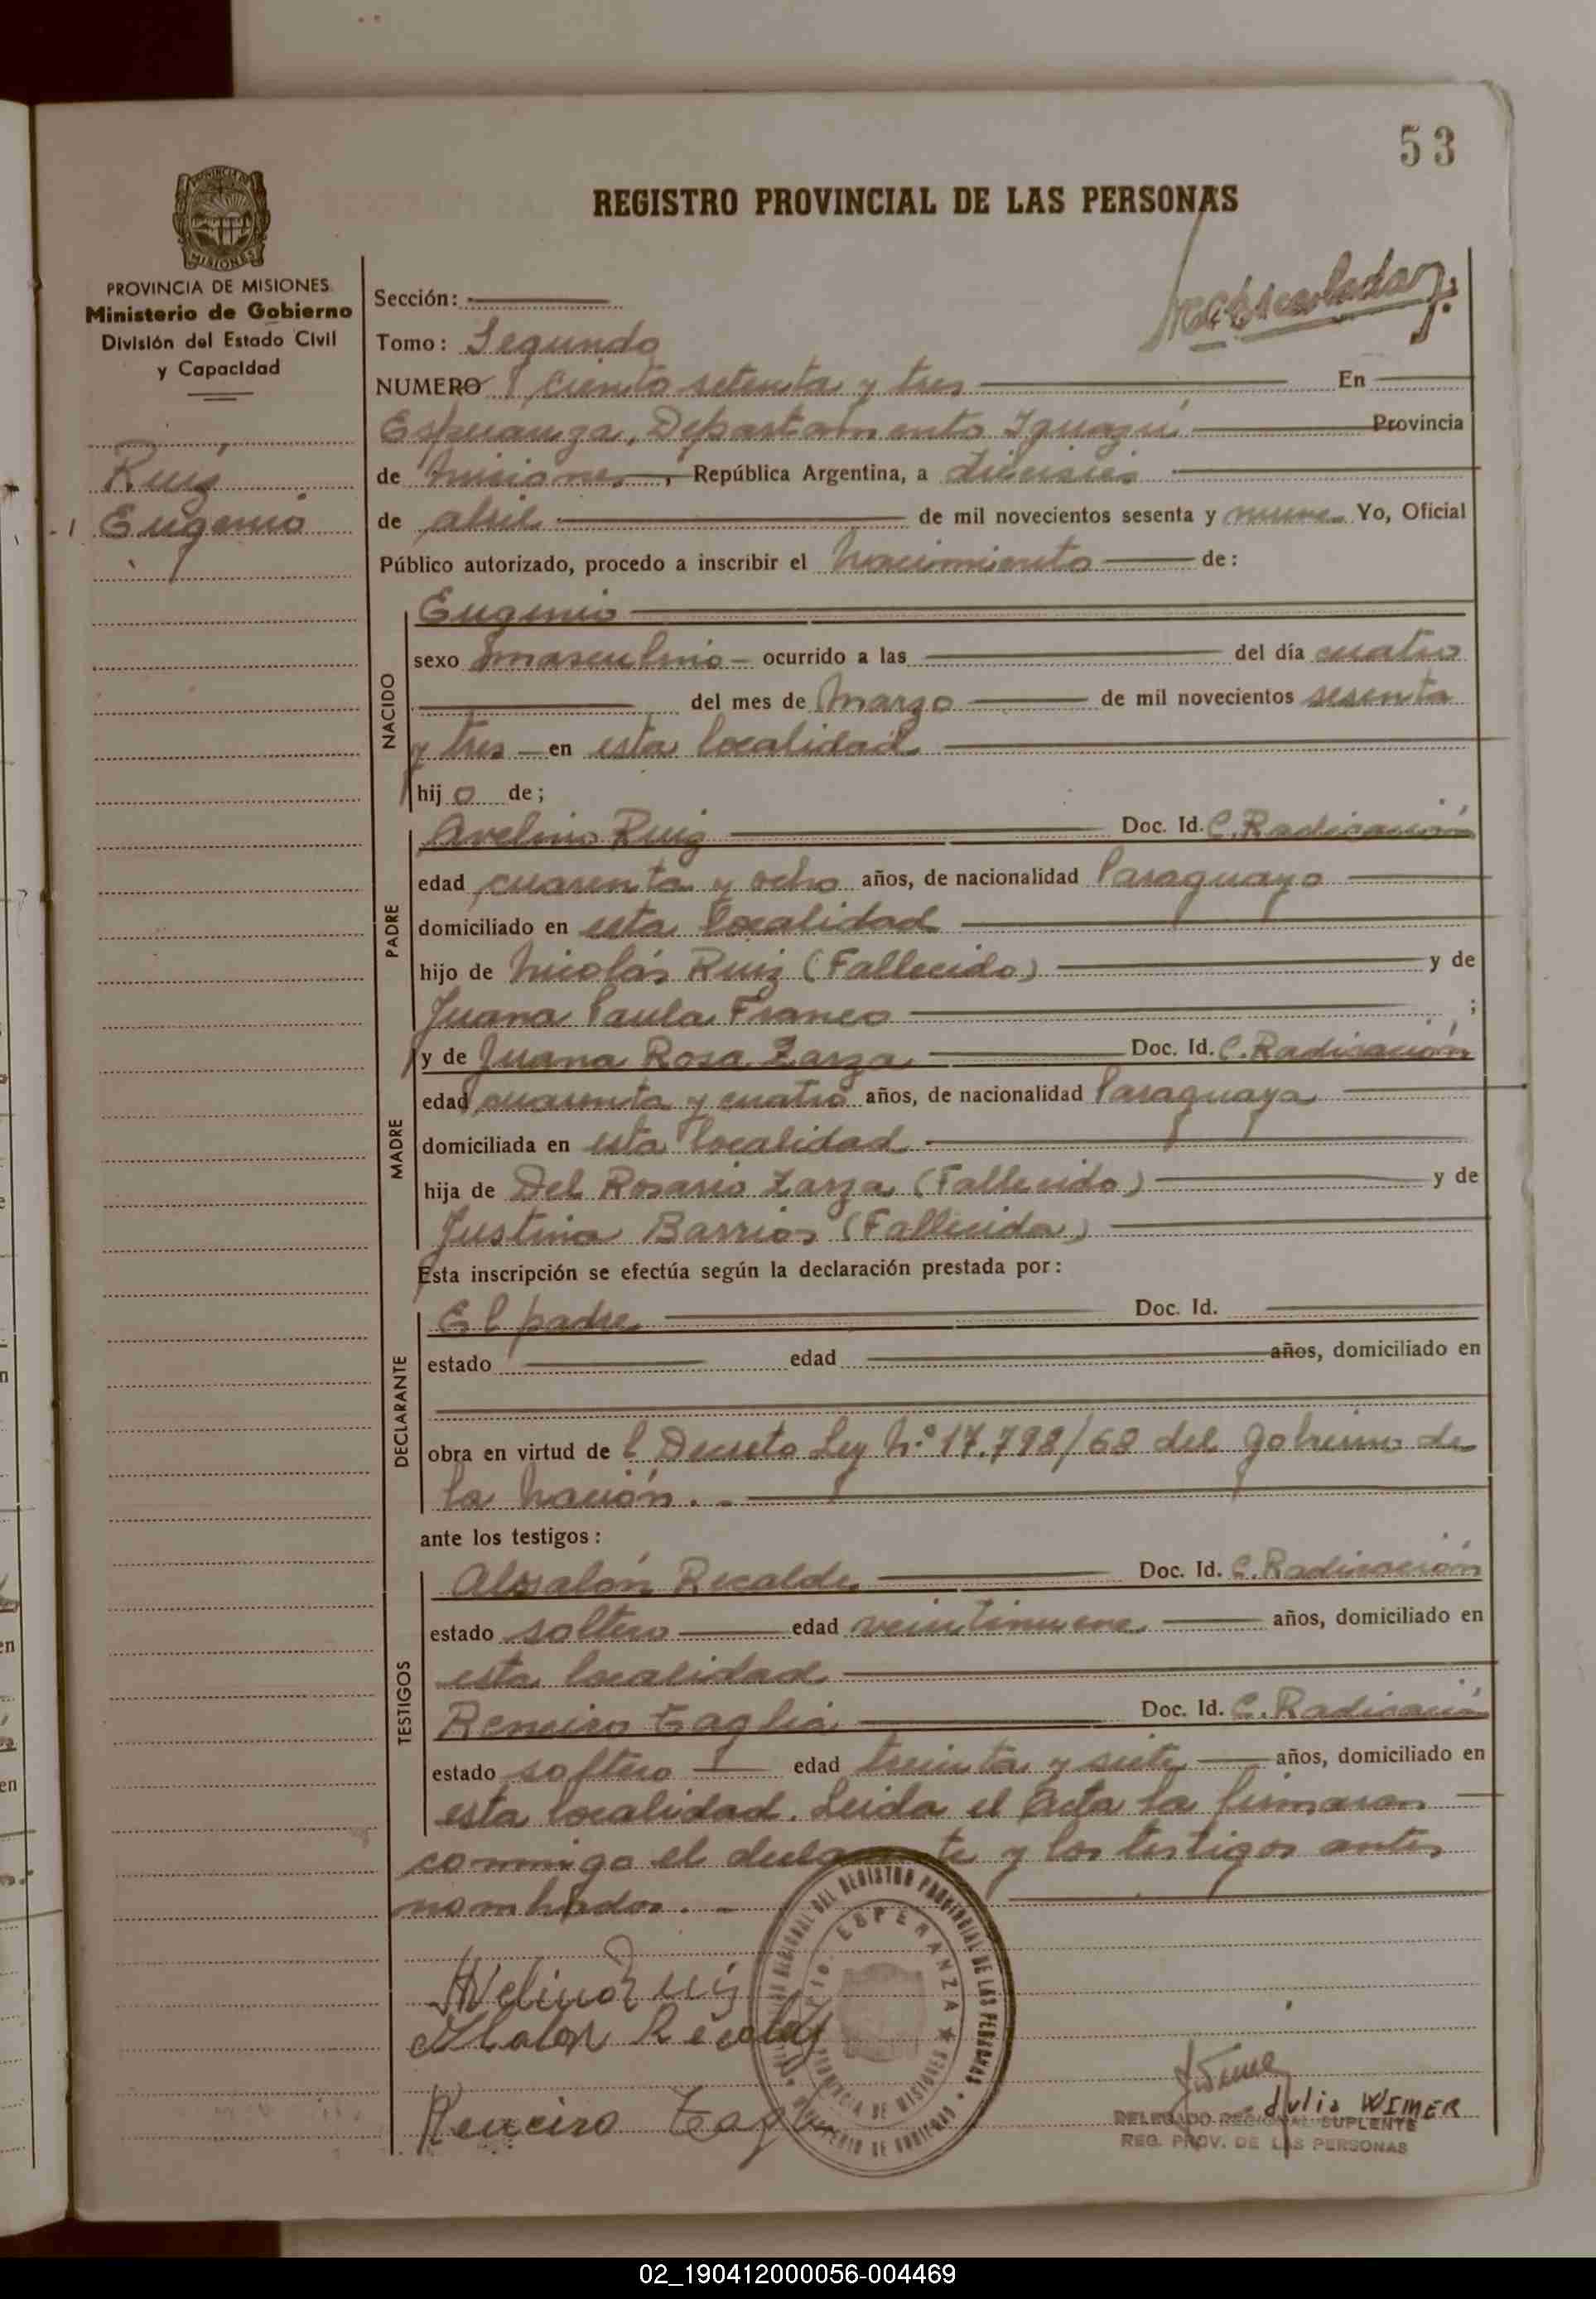 53
REGISTRO PROVINCIAL DE LAS PERSONAS
PROVINCIA DE MISIONES
Ministerio de Gobierno
División del Estado Civil
y Capacidad
Ruiz
Eugenio
Sección:
Tomo: Segundo
NUMERO ciento setenta y tres En
Esperanza, Departamento Iguazú Provincia
de Misiones, República Argentina, a dieciseis
de abril de mil novecientos sesenta y nueve Yo, Oficial
Público autorizado, procedo a inscribir el nacimiento de:
NACIDO
Eugenio
sexo masculino ocurrido a las del día cuatro
del mes de Marzo de mil novecientos sesenta
y tres en esta localidad
hijo de;
PADRE
Avelino Ruiz Doc. Id. C. Radicación
edad cuarenta y ocho años, de nacionalidad Paraguayo
domiciliado en esta localidad
hijo de Nicolás Ruiz (Fallecido) y de
Juana Paula Franco ;
MADRE
y de Juana Rosa Zarza Doc. Id. C. Radicación
edad cuarenta y cuatro años, de nacionalidad Paraguaya
domiciliada en esta localidad
hija de Del Rosario Zarza (Fallecido) y de
Justina Barrios (Fallecida)
Esta inscripción se efectúa según la declaración prestada por:
DECLARANTE
El padre Doc. Id.
estado edad años, domiciliado en
obra en virtud de l Decreto Ley N.º 17.798/68 del gobierno de
la nación.
ante los testigos:
TESTIGOS
Absalón Recalde Doc. Id. C. Radicación
estado soltero edad veintinueve años, domiciliado en
esta localidad
Renciro Taglia Doc. Id. C. Radicación
estado soltero edad treinta y siete años, domiciliado en
esta localidad. Leida el Acta la firmaron
conmigo el declarante y los testigos antes
nombrados.
Avelino Ruiz
ESPERANZA
PROVINCIA DE MISIONES
Julio WIMER
DELEGADO REGIONAL SUPLENTE
REG. PROV. DE LAS PERSONAS
02_190412000056-004469